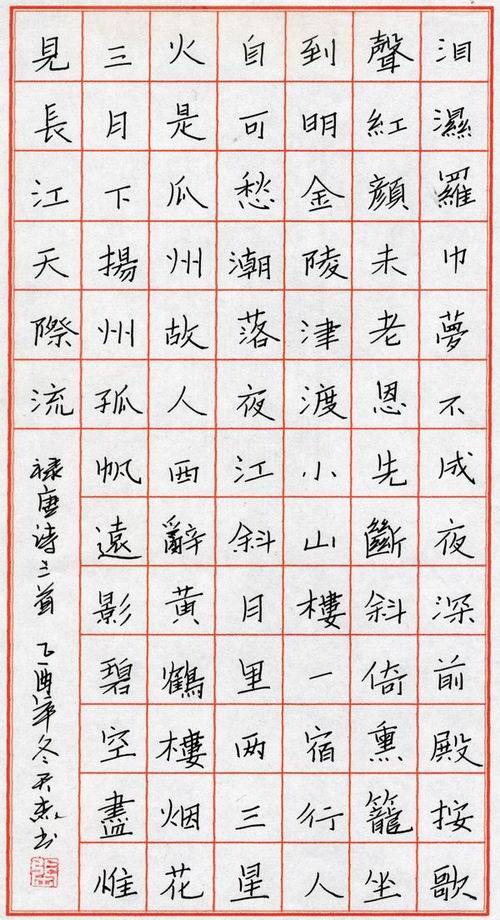 泪濕羅巾夢不成夜深前殿按歌
聲紅顏未老恩先斷斜倚熏籠坐
到明金陵津渡小山樓一宿行人
自可愁潮落夜江斜月里两三星
火是瓜州故人西辭黃鶴樓烟花
三月下揚州孤帆遠影碧空盡惟
見長江天際流
禄唐诗三首 乙酉年冬 书